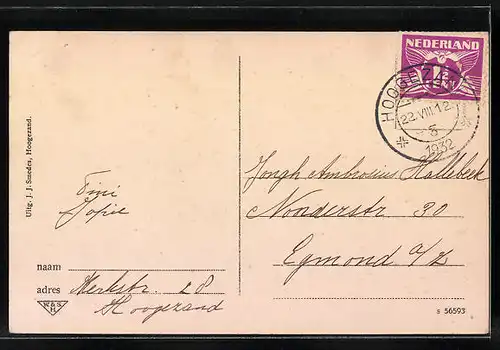 NEDERLAND
1½
CENT
HOOGEZAND
22.VIII.12.
1932
Uitg. J. J. Smedes, Hoogezand.
Tini
Jofiel
Jongh Ambrosius Hallebeek
Noorderstr 30
Egmond a/Z
naam
adres Kerkstr. 28
Hoogezand
s 56593